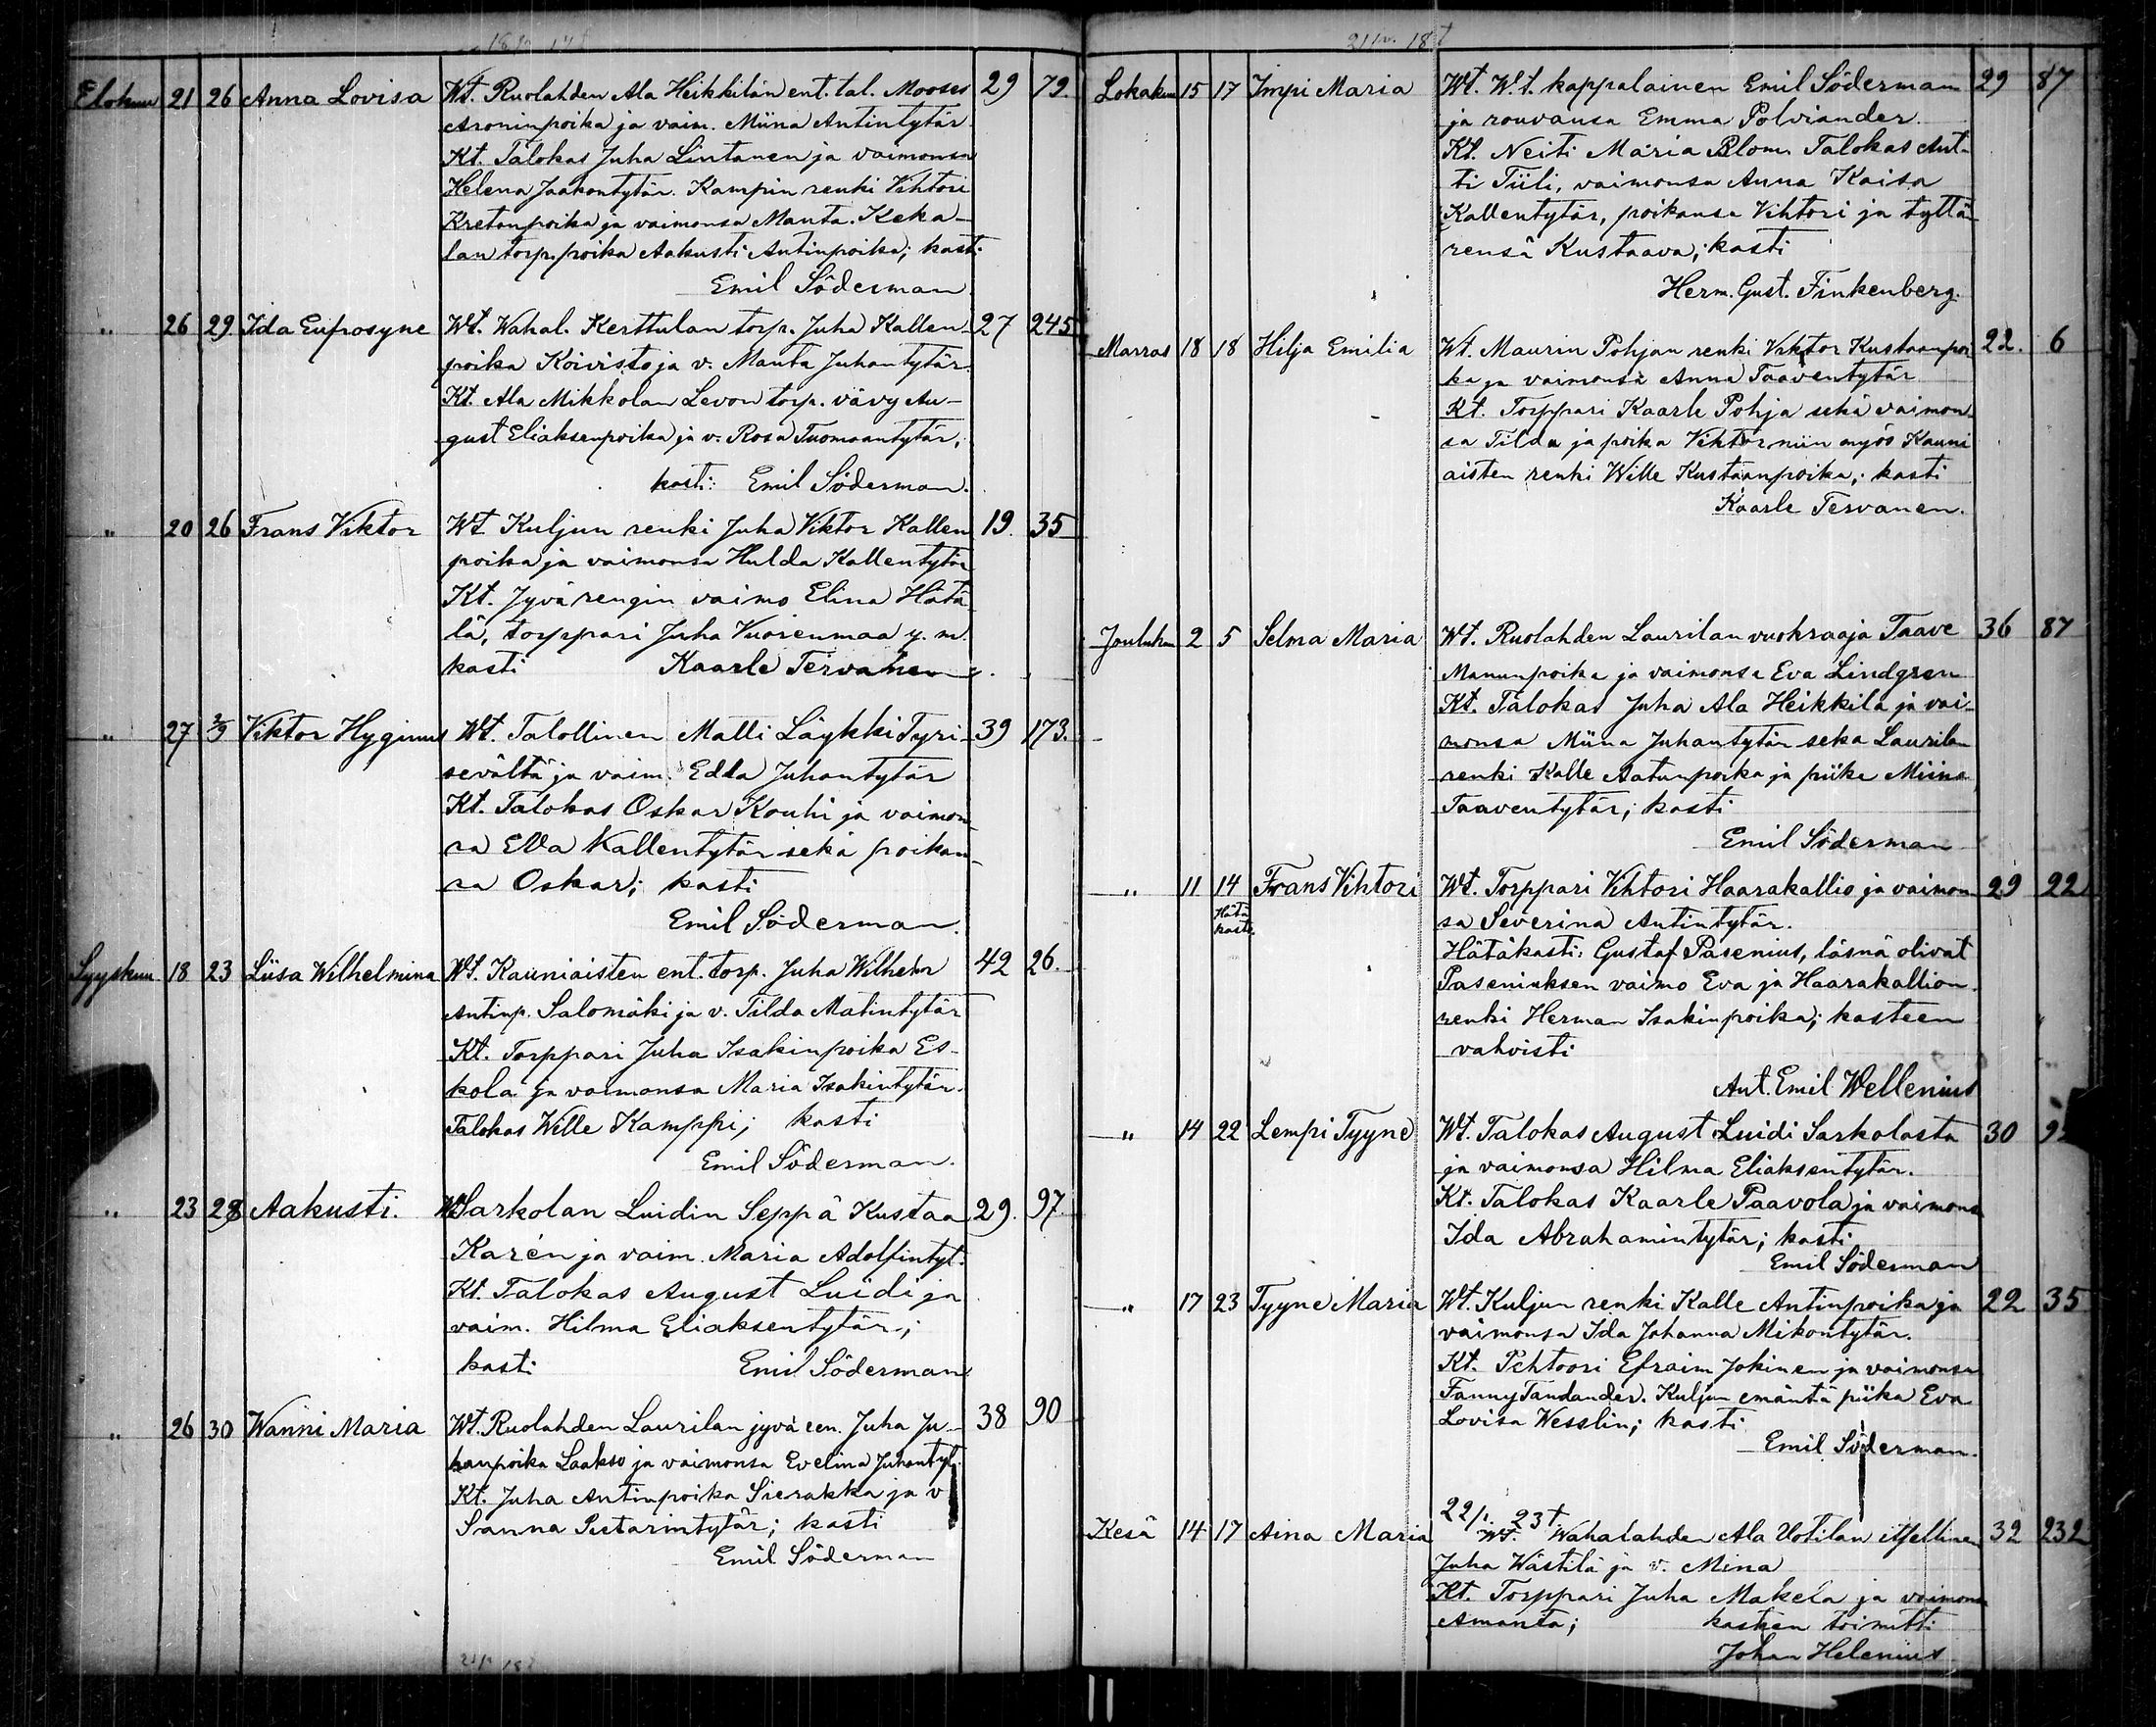 Elokuu 21 26 Anna Lovisa Wt. Ruolahden Ala Heikkilän ent. tal. Mooses 29 79.
Aroninpoika ja vaim. Miina Antintytär
Kt. Talokas Juha Lintanen ja vaimonsa
Helena Jaakontytär. Kampin renki Vihtori
Kretanpoika ja vaimonsa Manta. Keka-
lan torp. poika Aakusti Antinpoika; kasti
Emil Söderman
" 26 29. Ida Euprosyne Wt. Wahal. Kerttulan torp. Juha Kallen- 27 245
poika Koivisto ja v. Manta Juhantytär.
Kt. Ala Mikkolan Levon torp. vävy Au-
gust Eliaksenpoika ja v. Rosa Tuomaantytär,
kasti: Emil Söderman.
" 20 26 Frans Viktor Wt Kuljun renki Juha Viktor Kallen 19. 35
poika ja vaimonsa Hulda Kallentytär
Kt. Jyvärengin vaimo Elina Hätä
lä, torppari Juha Vuorenmaa y. m.
kasti Kaarle Tervanen.
" 27 2/9 Viktor Hyginus Wt. Talollinen Matti Läykki Tyri- 39 173.
sevältä ja vaim. Edla Juhantytär
Kt. Talokas Oskar Kouhi ja vaimon-
sa Eva Kallentytär sekä poikan-
sa Oskar; kasti
Emil Söderman.
Syyskuu 18 23 Liisa Wilhelmina Wt. Kauniaisten ent. torp. Juha Wilhelm 42 26.
Antinp. Salomäki ja v. Tilda Matintytär
Kt. Torppari Juha Isakinpoika Es-
kola ja vaimonsa Maria Isakintytär.
Talokas Wille Kamppi; kasti
Emil Söderman.
" 23 28 Aakusti. Wt Sarkolan Luidin Seppä Kustaa 29. 97.
Karén ja vaim. Maria Adolfintyt.
Kt. Talokas August Luidi ja
vaim. Hilma Eliaksentytär;
kasti Emil Söderman
" 26 30 Wanni Maria Wt. Ruolahden Laurilan jyvären. Juha Ju- 38 90
hanpoika Laakso ja vaimonsa Evelina Juhantyt.
Kt. Juha Antinpoika Sierakka ja v
Sanna Pietarintytär; kasti
Emil Söderman
Lokakuu 15 17 Impi Maria Wt. W. t. kappalainen Emil Söderman 29 87
ja rouvansa Emma Polviander.
Kt. Neiti Maria Blom. Talokas Ant-
ti Tiili, vaimonsa Anna Kaisa
Kallentytär, poikansa Vihtori ja tyttä-
rensä Kustaava; kasti
Herm. Gust. Finkenberg.
Marras 18 18 Hilja Emilia Wt. Maurin Pohjan renki Viktor Kustaanpoi 22. 6
ka ja vaimonsa Anna Taaventytär
Kt. Torppari Kaarle Pohja sekä vaimon
sa Tilda ja poika Vihtor niin myös Kauni
aisten renki Wille Kustaanpoika; kasti
Kaarle Tervanen.
Joulukuu 2 5 Selma Maria Wt. Ruolahden Laurilan vuokraaja Taave 36 87
Manunpoika ja vaimonsa Eva Lindgren
Kt. Talokas Juha Ala Heikkilä ja vai-
monsa Miina Juhantytär seka Laurilan
renki Kalle Aatunpoika ja piika Miina
Taaventytär; kasti
Emil Söderman
" 11 14 Frans Vihtori Wt. Torppari Vihtori Haarakallio ja vaimon 29 22
Hätä
kaste. sa Severina Antintytär.
Hätäkasti: Gustaf Pasenius, läsnä olivat
Paseniuksen vaimo Eva ja Haarakallion
renki Herman Isakinpoika; kasteen
vahvisti
Ant. Emil Wellenius
" 14 22 Lempi Tyyne Wt. Talokas August Luidi Sarkolasta 30
ja vaimonsa Hilma Eliaksentytär.
Kt. Talokas Kaarle Paavola ja vaimonsa
Ida Abrahamintytär; kasti
Emil Söderman
" 17 23 Tyyne Maria Wt. Kuljun renki Kalle Antinpoika ja 22 35
vaimonsa Ida Johanna Mikontytär.
Kt. Pehtoori Efraim Jokinen ja vaimonsa
Fanny Tandander. Kuljun emäntä piika Eva
Lovisa Wesslin; kasti
Emil Söderman.
Kesä 14 17 Aina Maria Wt. Wahalahden Ala Uotilan itsellinen 32 232
Juha Wästilä ja v. Mina
Kt. Torppari Juha Makela ja vaimonsa
Amanta; kasteen toimitti
Johan Helenius